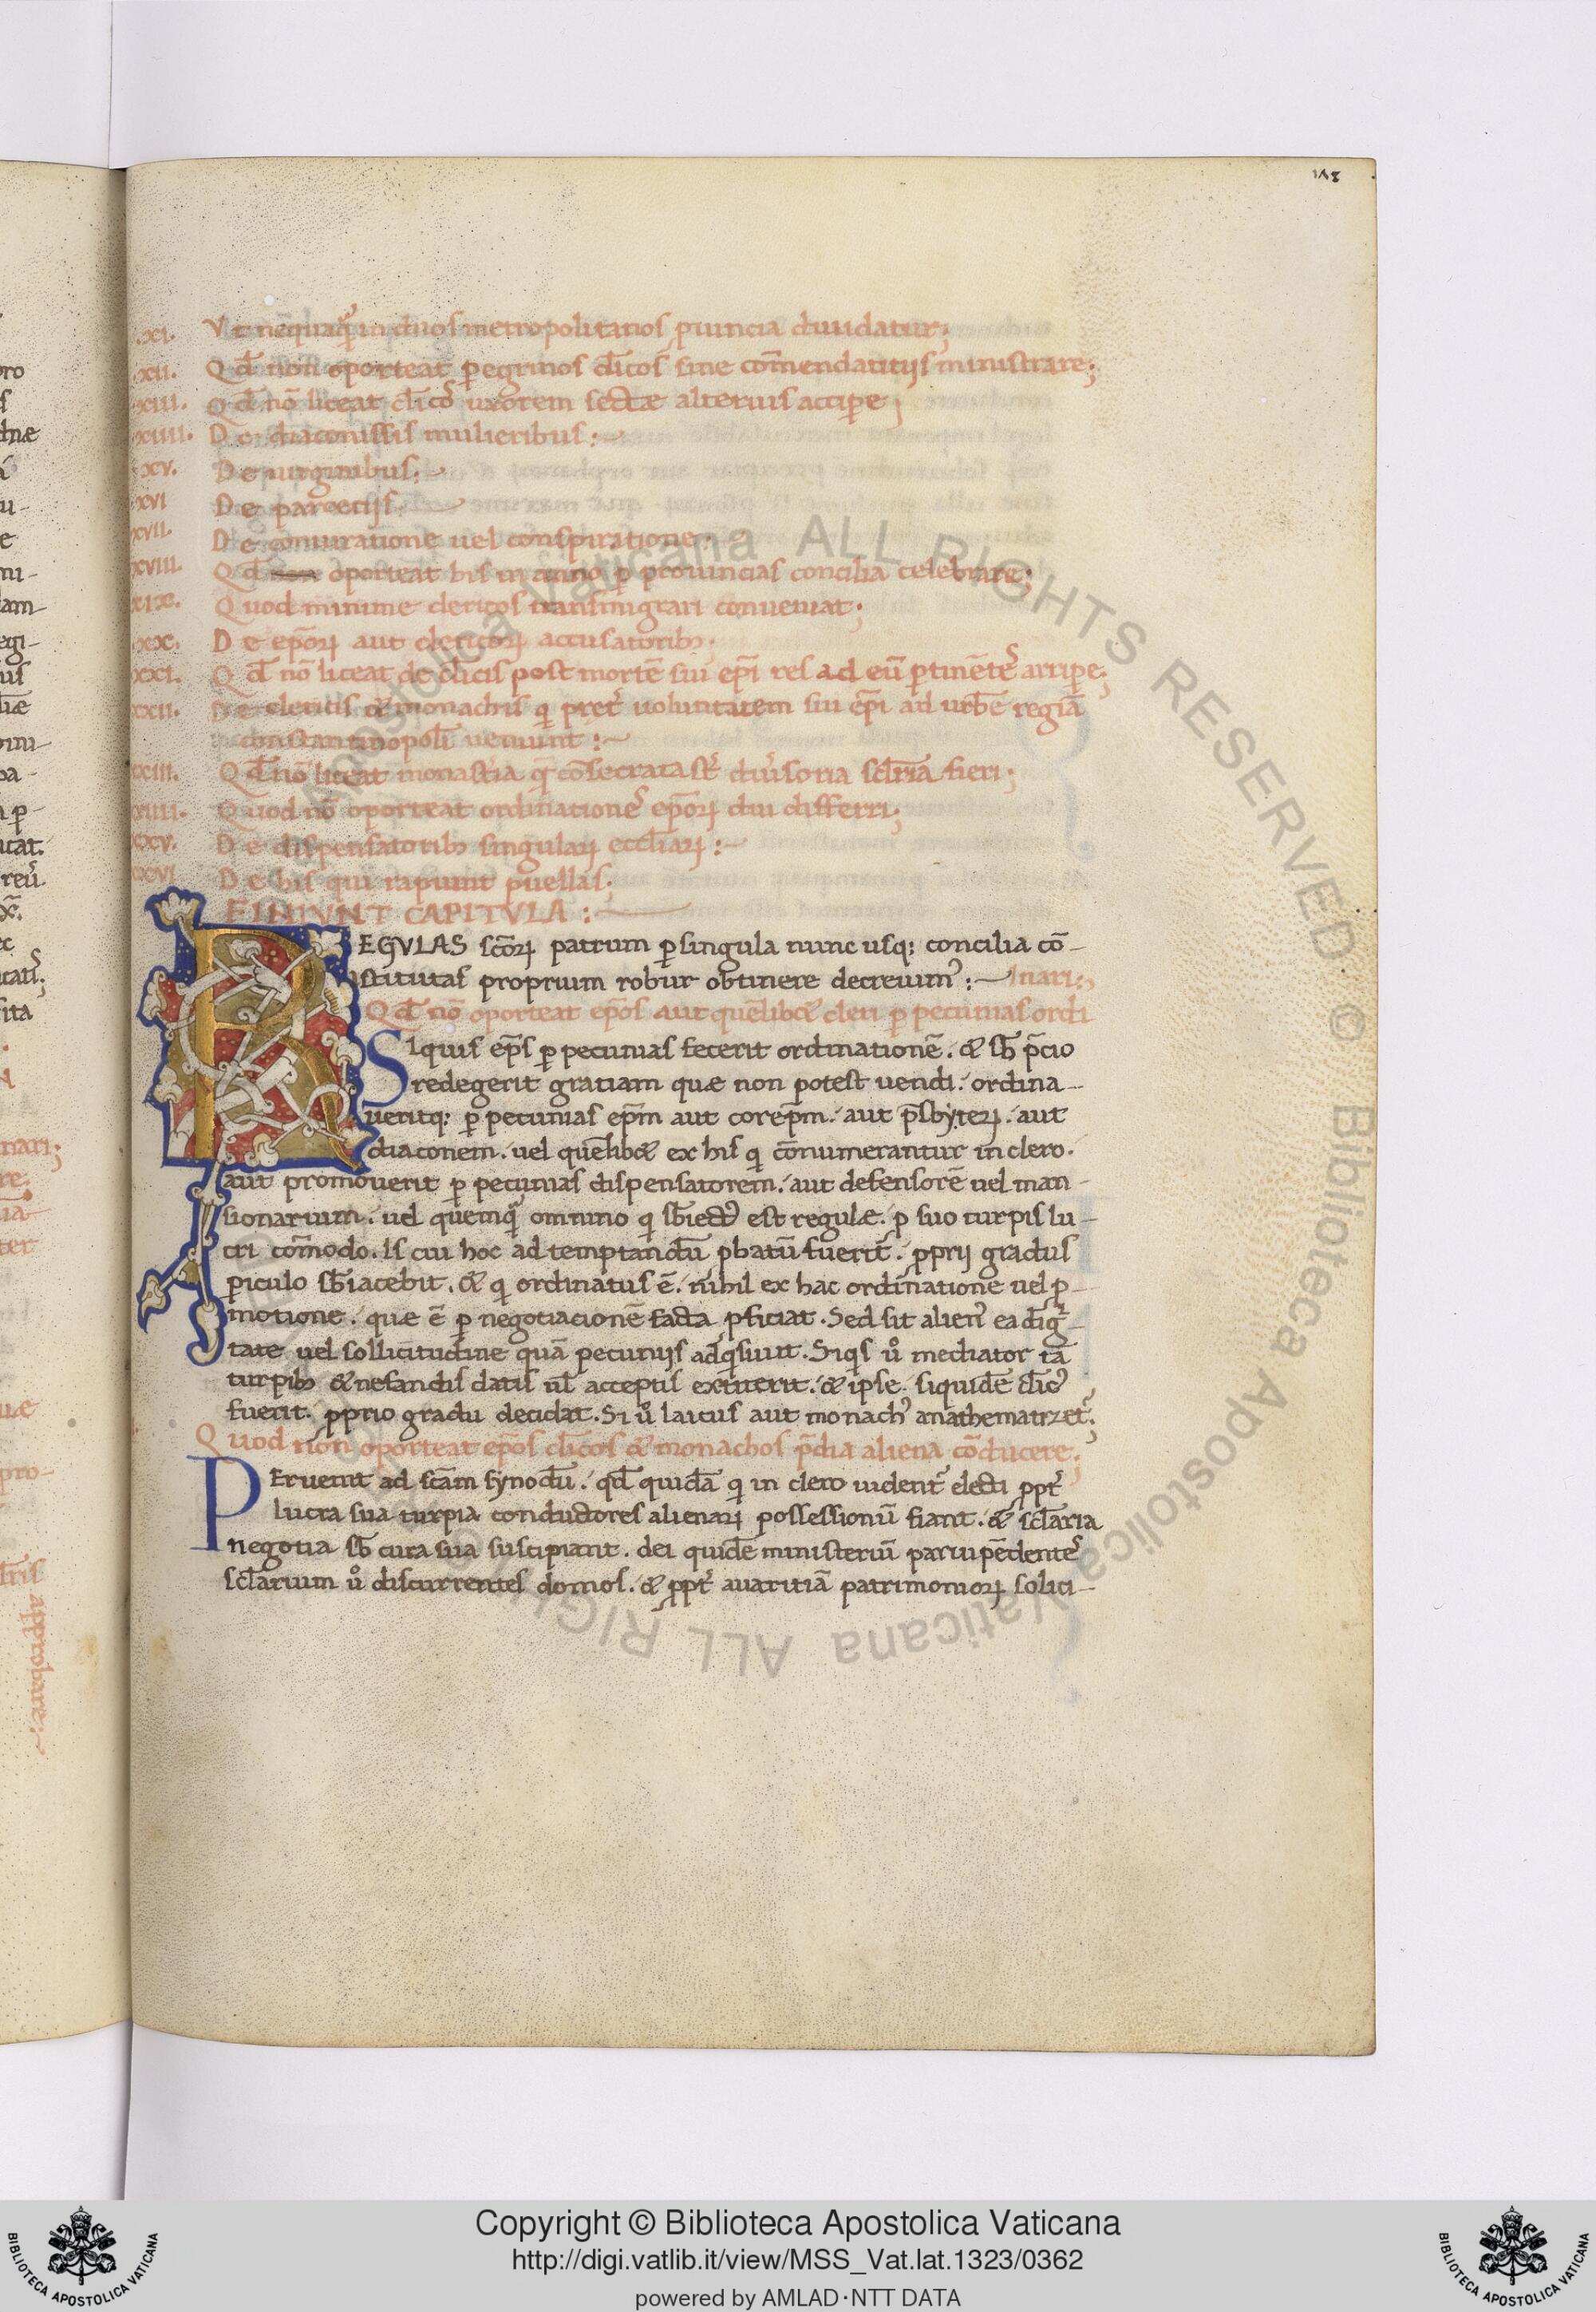 188
XI. Vt nequaq̄ in duos metropolitanos ꝓuincia diuidatur;
XII. Qd̄ non oporteat ꝑegrinos cl̄icos sine com̄endatitijs ministrare;
XIII. Qd̄ nō liceat cl̄ico uxorem sectæ alterius accipe;
XIIII. De diaconissis mulieribus:~
XV. De uirginibus:~
XVI De paroecijs.
XVII. De coniuratione uel conspiratione:~
XVIII. Qd̄ non oporteat bis in anno ꝑ prouincias concilia celebrare;
XIX. Quod minime clericos transmigrari conueniat;
XX. De ep̄oꝝ aut clericoꝝ accusatorib;
XXI. Qd̄ nō liceat de cl̄icis post mortē sui ep̄i res ad eū ꝑtinētes arripe;
XXII. De clericis & monachis q̇ pret̄ uoluntatem sui ep̄i ad urbē regiā
constantinopolī ueniunt:~
XXIII. Qd̄ nō liceat monast̄ia q̄ cōsecrata st̄ diu̇soria scl̄aria fieri;
XXIIII. Quod nō oporteat ordinationes ep̄oꝝ diu differri;
XXV. De dispensatorib; singulaꝝ eccl̄iaꝝ:~
XXVI De his qui rapiunt puellas;
FINIVNT CAPITVLA:~
REGVLAS sc̄oꝝ patrum ꝑ singula nunc usq; concilia cō-
stitutas proprium robur obtinere decreuim᾿:~ nari;
Qd̄ nō oporteat ep̄os aut quēlib& cleri ꝑ pecunias ordi
SIquis ep̄s ꝑ pecunias fecerit ordinationē. & sb̄ p̄cio
redegerit gratiam quæ non potest uendi. ordina-
ueritq; ꝑ pecunias ep̄m aut corep̄m. aut p̄sbyteꝝ. aut
diaconem. uel quēlib& ex his q̇ cōnumerantur in clero.
aut promouerit ꝑ pecunias dispensatorem. aut defensorē uel man-
sionarium. uel quemq̄ omnino q̇ sb̄iect᾿ est regulæ. ꝓ suo turpis lu-
cri com̄odo. Is cui hoc ad temptandū ꝓbatū fuerit. ꝓprij gradus
ꝑiculo sb̄iacebit. & q̇ ordinatus ē. nihil ex hac ordinatione uel ꝓ-
motione. quæ ē ꝑ negotiacionē facta ꝓficiat. Sed sit alien᾿ ea dig-
tate uel sollicitudine quā pecunijs adq̇siuit. Siq̇s u̇ mediator tā
turpib; & nefandis datis ul̄ acceptis extiterit. & ipse siquidē cl̄ic᾿
fuerit. ꝓprio gradu decidat. Si u̇ laicus aut monach᾿ anathematizet᾿;
Quod non oporteat ep̄os cl̄icos & monachos p̄dia aliena cōducere;
PEruenit ad sc̄am synodū. qd̄ quidā q̇ in clero uident᾿ electi ꝓpt᾿
lucra sua turpia conductores alienaꝝ possessionū fiant. & scl̄aria
negotia sb̄ cura sua suscipiant. dei quidē ministeriū paruipēdentes
scl̄arium u̇ discurrentes domos. & ꝓpt᾿ auaritiā patrimonioꝝ solici-
Copyright © Biblioteca Apostolica Vaticana
http://digi.vatlib.it/view/MSS_Vat.lat.1323/0362
powered by AMLAD·NTT DATA